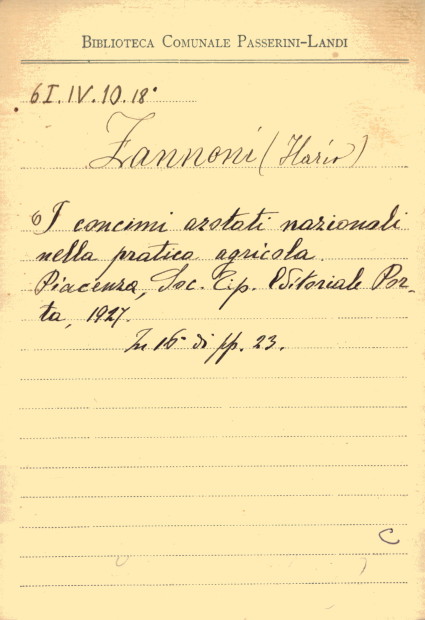 BIBLIOTECA COMUNALE PASSERINI-LANDI
6I.IV.10.18°
Zannoni (Ilario)
I concimi azotati nazionali
nella pratica agricola.
Piacenza, Soc. Tip. Editoriale Por-
ta, 1927.
In 16° di pp. 23.
C